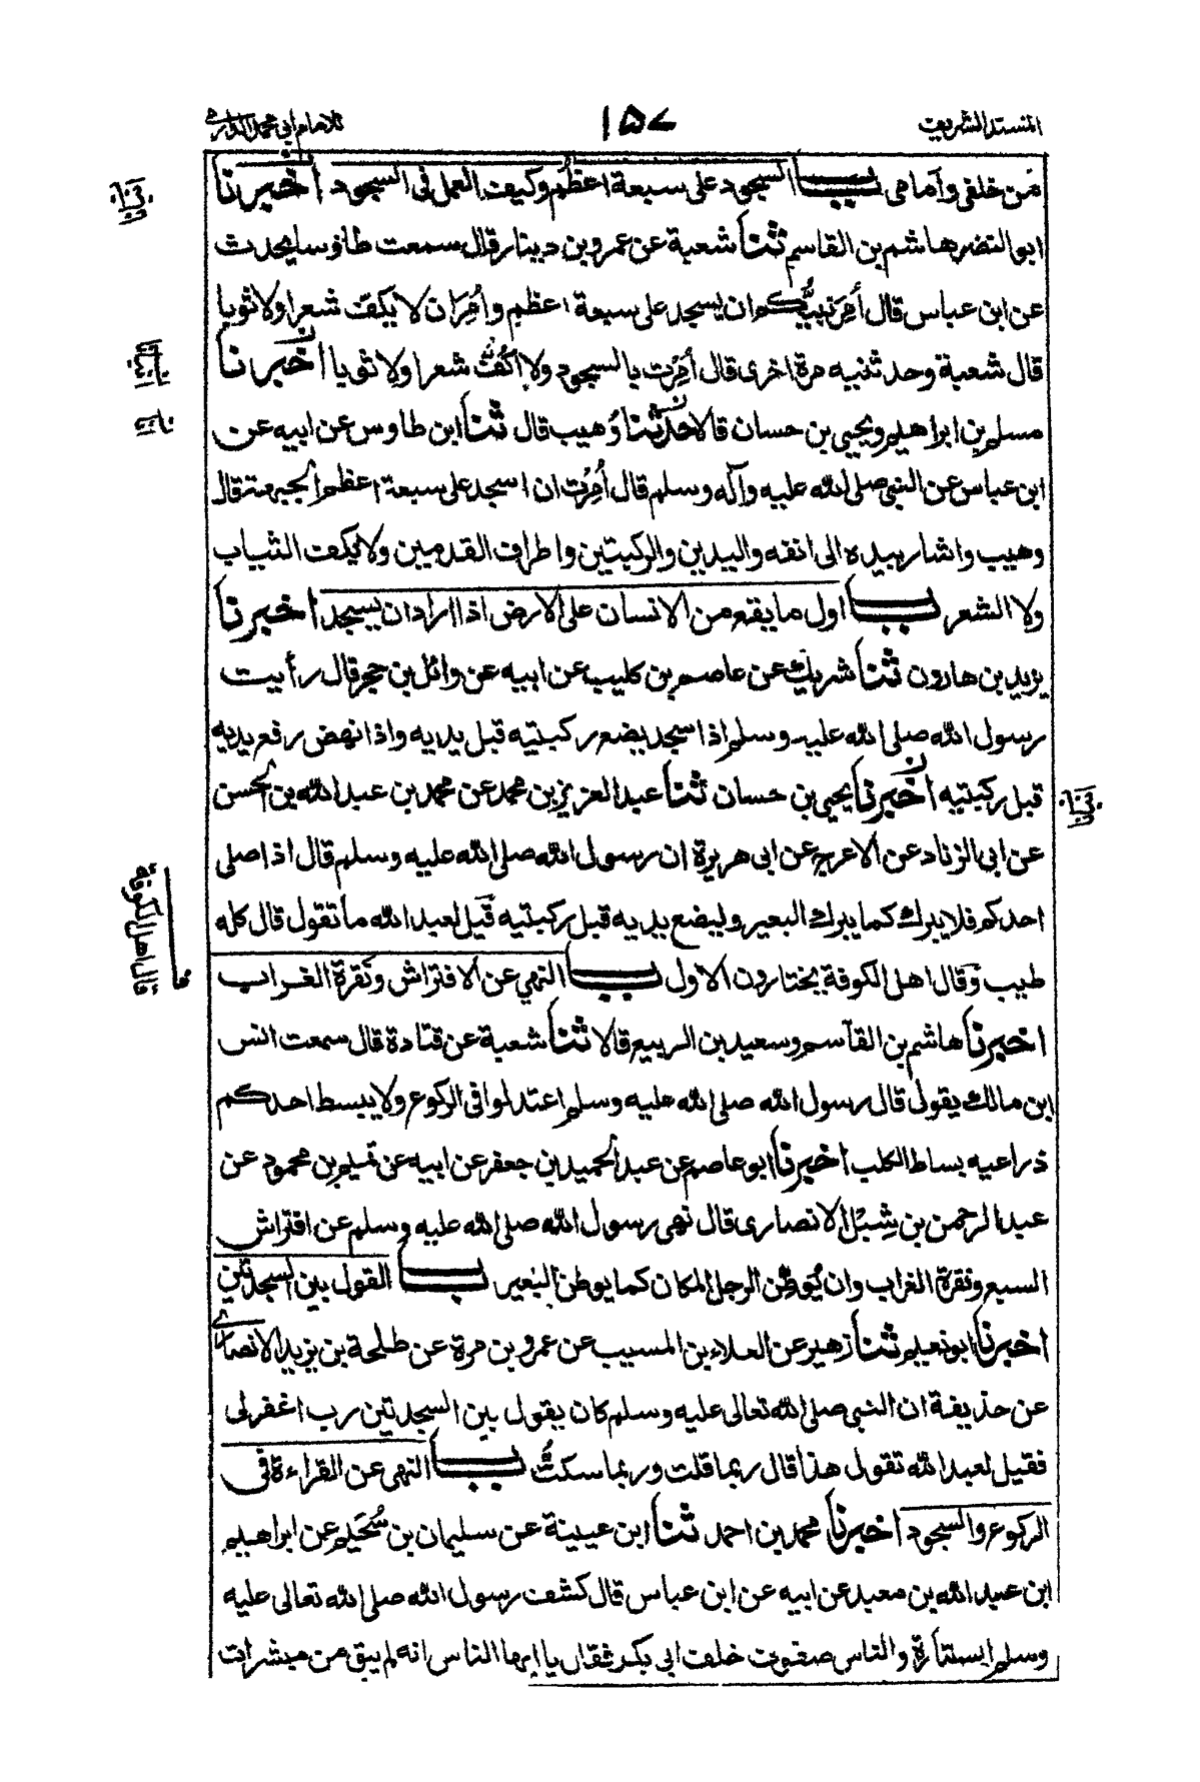 المسند الشريف
١٥٧
للامام ابی محمد الدارمی
من خلفی وامامی باب السجود علی سبعة اعظم وكيف العمل فی السجود اخبرنا
ابو النضر هاشم بن القاسم ثنا شعبة عن عمرو بن دينار قال سمعت طاؤسا يحدث
عن ابن عباس قال أُمِرَ نبيُّكم ان يسجد علی سبعة اعظم وأُمِرَ ان لا يكف شعرا ولا ثوبا
قال شعبة وحدثنيه مرة اخری قال أُمِرْت بالسجود ولا اكُفّ شعرا ولا ثوبا اخبرنا
مسلم بن ابراهيم ويحيی بن حسان قالا حدثنا وُهيب قال ثنا ابن طاوس عن ابيه عن
ابن عباس عن النبی صلی الله عليه وآله وسلم قال أُمِرْت ان اسجد علی سبعة اعظم الجبهة قال
وهيب واشار بيده الی انفه واليدين والركبتين واطراف القدمين ولا يكف الثياب
ولا الشعر باب اول ما يقع من الانسان علی الارض اذا اراد ان يسجد اخبرنا
يزيد بن هارون ثنا شريك عن عاصم بن كليب عن ابيه عن وائل بن حجر قال رأيت
رسول الله صلی الله عليه وسلم اذا سجد يضع ركبتيه قبل يديه واذا نهض رفع يديه
قبل ركبتيه اخبرنا يحيی بن حسان ثنا عبد العزيز بن محمد عن محمد بن عبد الله بن الحسن
عن ابی الزناد عن الاعرج عن ابی هريرة ان رسول الله صلی الله عليه وسلم قال اذا صلی
احدكم فلا يبرك كما يبرك البعير وليضع يديه قبل ركبتيه قيل لعبد الله ما تقول قال كله
طيب وقال اهل الكوفة يختارون الاول باب النهی عن الافتراش ونقرة الغراب
قال اهل الكوفة
اخبرنا هاشم بن القاسم وسعيد بن الربيع قالا ثنا شعبة عن قتادة قال سمعت انس
ابن مالك يقول قال رسول الله صلی الله عليه وسلم اعتدلوا فی الركوع ولا يبسط احدكم
ذراعيه بساط الكلب اخبرنا ابو عاصم عن عبد الحميد بن جعفر عن ابيه عن تميم بن محمود عن
عبد الرحمن بن شِبْل الانصاری قال نهی رسول الله صلی الله عليه وسلم عن افتراش
السبع ونقرة الغراب وان يُوطِّن الرجل المكان كما يوطن البعير باب القول بين السجدتين
اخبرنا ابو نعيم ثنا زهير عن العلاء بن المسيب عن عمرو بن مرة عن طلحة بن يزيد الانصاری
عن حذيفة ان النبی صلی الله تعالی عليه وسلم كان يقول بين السجدتين رب اغفر لی
فقيل لعبد الله تقول هذا قال ربما قلت وربما سكتُّ باب النهی عن القراءة فی
الركوع والسجود اخبرنا محمد بن احمد ثنا ابن عيينة عن سليمان بن سُحَيم عن ابراهيم
ابن عبد الله بن معبد عن ابيه عن ابن عباس قال كشف رسول الله صلی الله تعالی عليه
وسلم الستارة والناس صفوف خلف ابی بكر فقال يا ايها الناس انه لم يبق من مبشرات